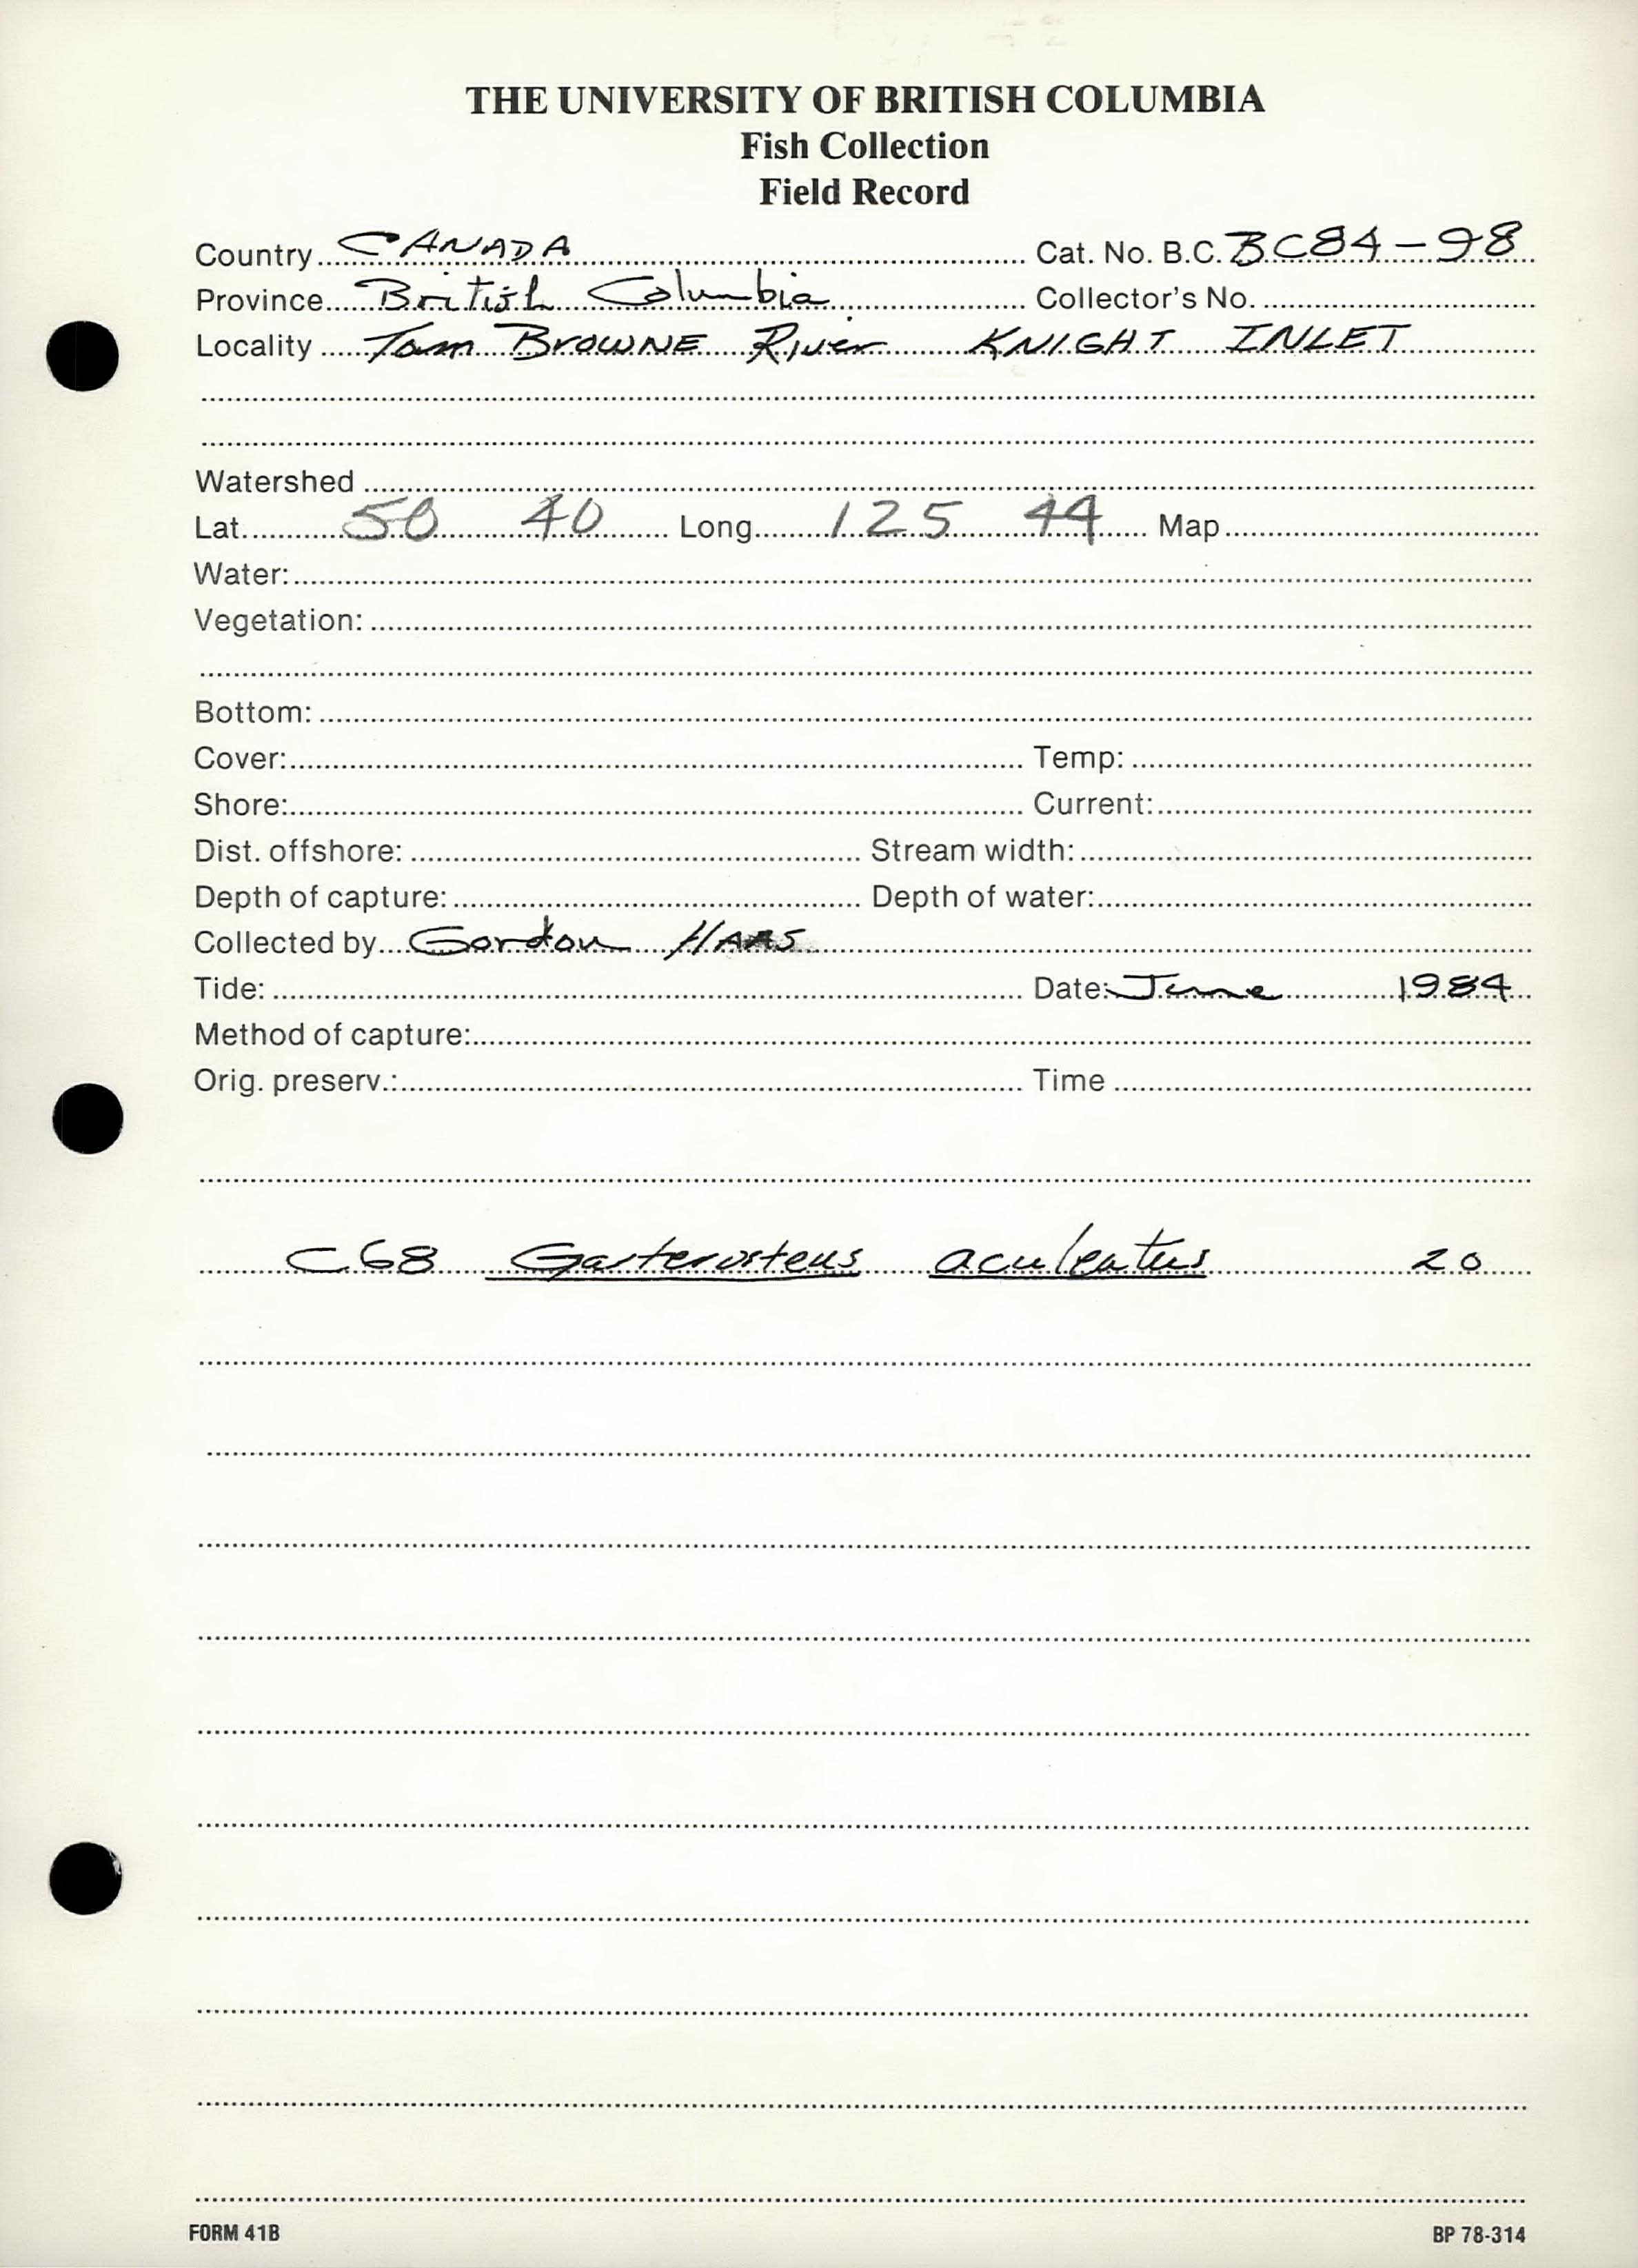 THE UNIVERSITY OF BRITISH COLUMBIA
Fish Collection
Field Record
Country CANADA Cat. No. B.C. BC84-98
Province British Columbia Collector's No.
Locality Tom BROWNE River KNIGHT INLET
Watershed
Lat. 50 40 Long. 125 44 Map
Water:
Vegetation:
Bottom:
Cover: Temp:
Shore: Current:
Dist. offshore: Stream width:
Depth of capture: Depth of water:
Collected by Gordon HAAS
Tide: Date: June 1984
Method of capture:
Orig. preserv.: Time
C68 Gasterosteus aculeatus 20
FORM 41B BP 78-314